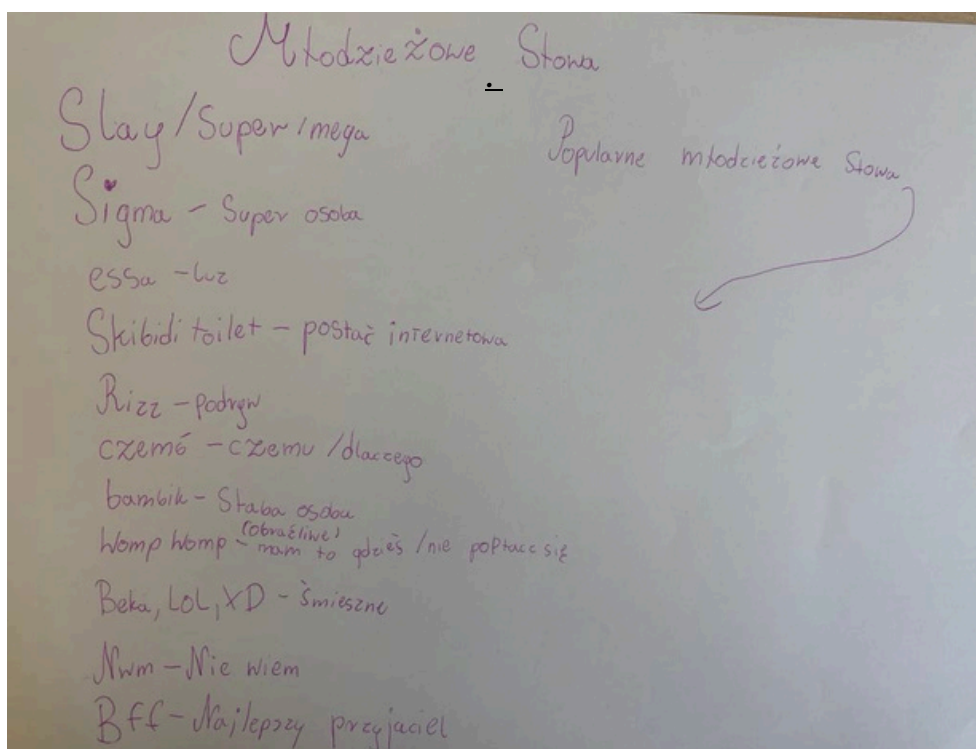 Młodzieżowe Słowa
.
Slay/Super/mega
Popularne młodzieżowe Słowa
Sigma - Super osoba
essa - luz
Skibidi toilet - postać internetowa
Rizz - podryw
czemó - czemu/dlaczego
bambik - Słaba osoba
(obraźliwe)
Womp Womp - mam to gdzieś/nie popłacz się
Beka, LOL, XD - śmieszne
Nwm - Nie wiem
Bff - Najlepszy przyjaciel